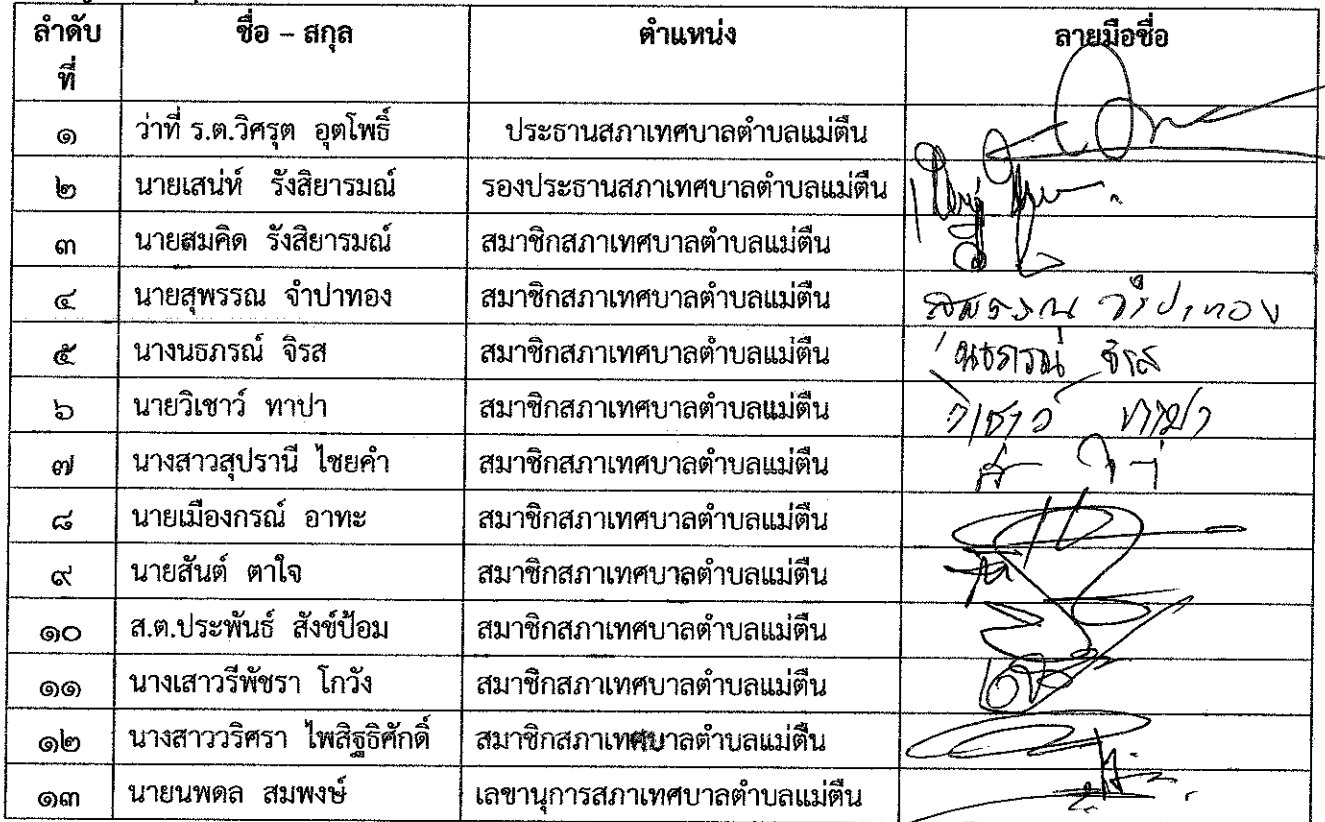 ลำดับที่ ชื่อ – สกุล ตำแหน่ง ลายมือชื่อ
๑ ว่าที่ ร.ต.วิศรุต อุตโพธิ์ ประธานสภาเทศบาลตำบลแม่ตืน
๒ นายเสน่ห์ รังสิยารมณ์ รองประธานสภาเทศบาลตำบลแม่ตืน
๓ นายสมคิด รังสิยารมณ์ สมาชิกสภาเทศบาลตำบลแม่ตืน
๔ นายสุพรรณ จำปาทอง สมาชิกสภาเทศบาลตำบลแม่ตืน สุพรรณ จำปาทอง
๕ นางนธภรณ์ จิรส สมาชิกสภาเทศบาลตำบลแม่ตืน นธภรณ์ จิรส
๖ นายวิเชาว์ ทาปา สมาชิกสภาเทศบาลตำบลแม่ตืน วิเชาว์ ทาปา
๗ นางสาวสุปรานี ไชยคำ สมาชิกสภาเทศบาลตำบลแม่ตืน
๘ นายเมืองกรณ์ อาทะ สมาชิกสภาเทศบาลตำบลแม่ตืน
๙ นายสันต์ ตาใจ สมาชิกสภาเทศบาลตำบลแม่ตืน
๑๐ ส.ต.ประพันธ์ สังข์ป้อม สมาชิกสภาเทศบาลตำบลแม่ตืน
๑๑ นางเสาวรีพัชรา โกวัง สมาชิกสภาเทศบาลตำบลแม่ตืน
๑๒ นางสาววริศรา ไพสิฐธิศักดิ์ สมาชิกสภาเทศบาลตำบลแม่ตืน
๑๓ นายนพดล สมพงษ์ เลขานุการสภาเทศบาลตำบลแม่ตืน